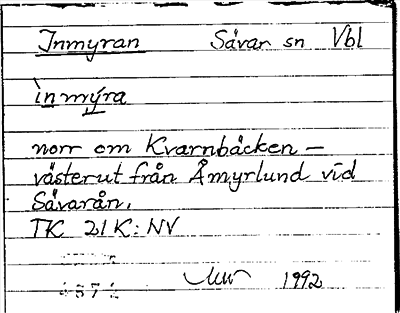 Inmyran Sävar sn Vbl
ìnmýra
norr om Kvarnbäcken –
västerut från Åmyrlund vid
Sävarån.
TK 21K: NV
1992